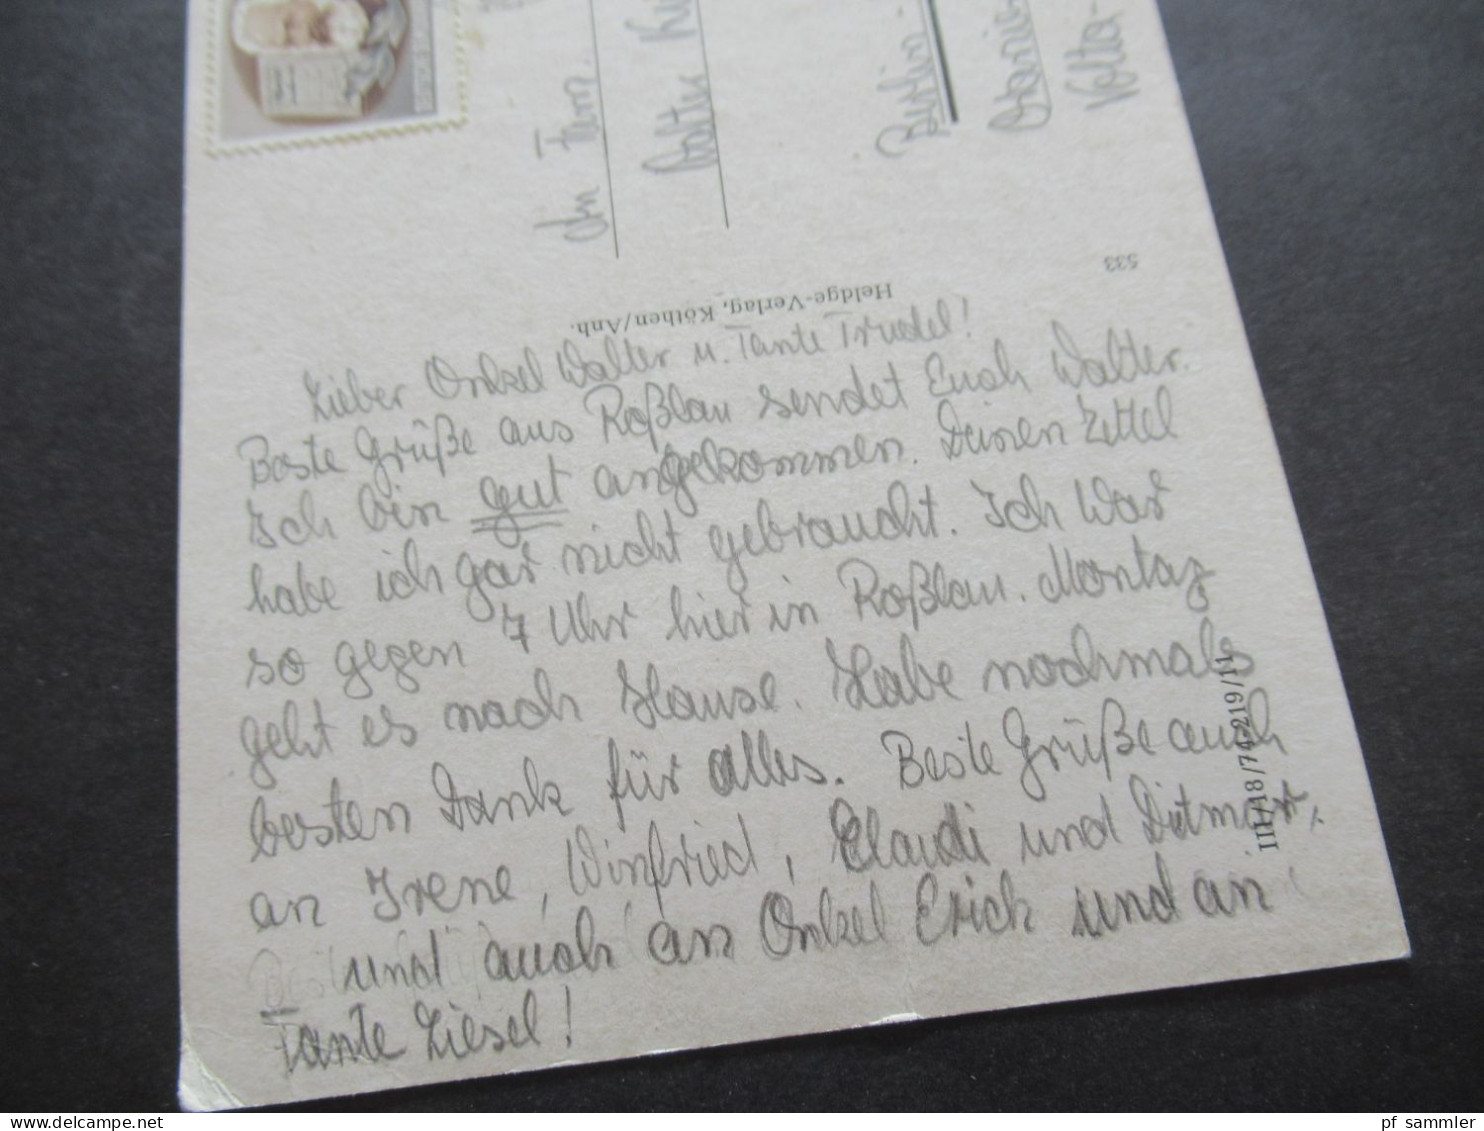 An Fam.
Walter
Berlin -
Volta-
533
Heldge-Verlag, Köthen/Anh.
Lieber Onkel Walter u. Tante Trudel!
Beste Grüße aus Roßlau sendet Euch Walter.
Ich bin gut angekommen. Deinen Zettel
habe ich gar nicht gebraucht. Ich war
so gegen 7 Uhr hier in Roßlau. Montag
geht es nach Hause. Habe nochmals
besten Dank für alles. Beste Grüße auch
an Irene, Winfried, Claudi und Ditmart,
und auch an Onkel Erich und an
Tante Liesel!
III/18/74 219/11
pf sammler
delcampe.net